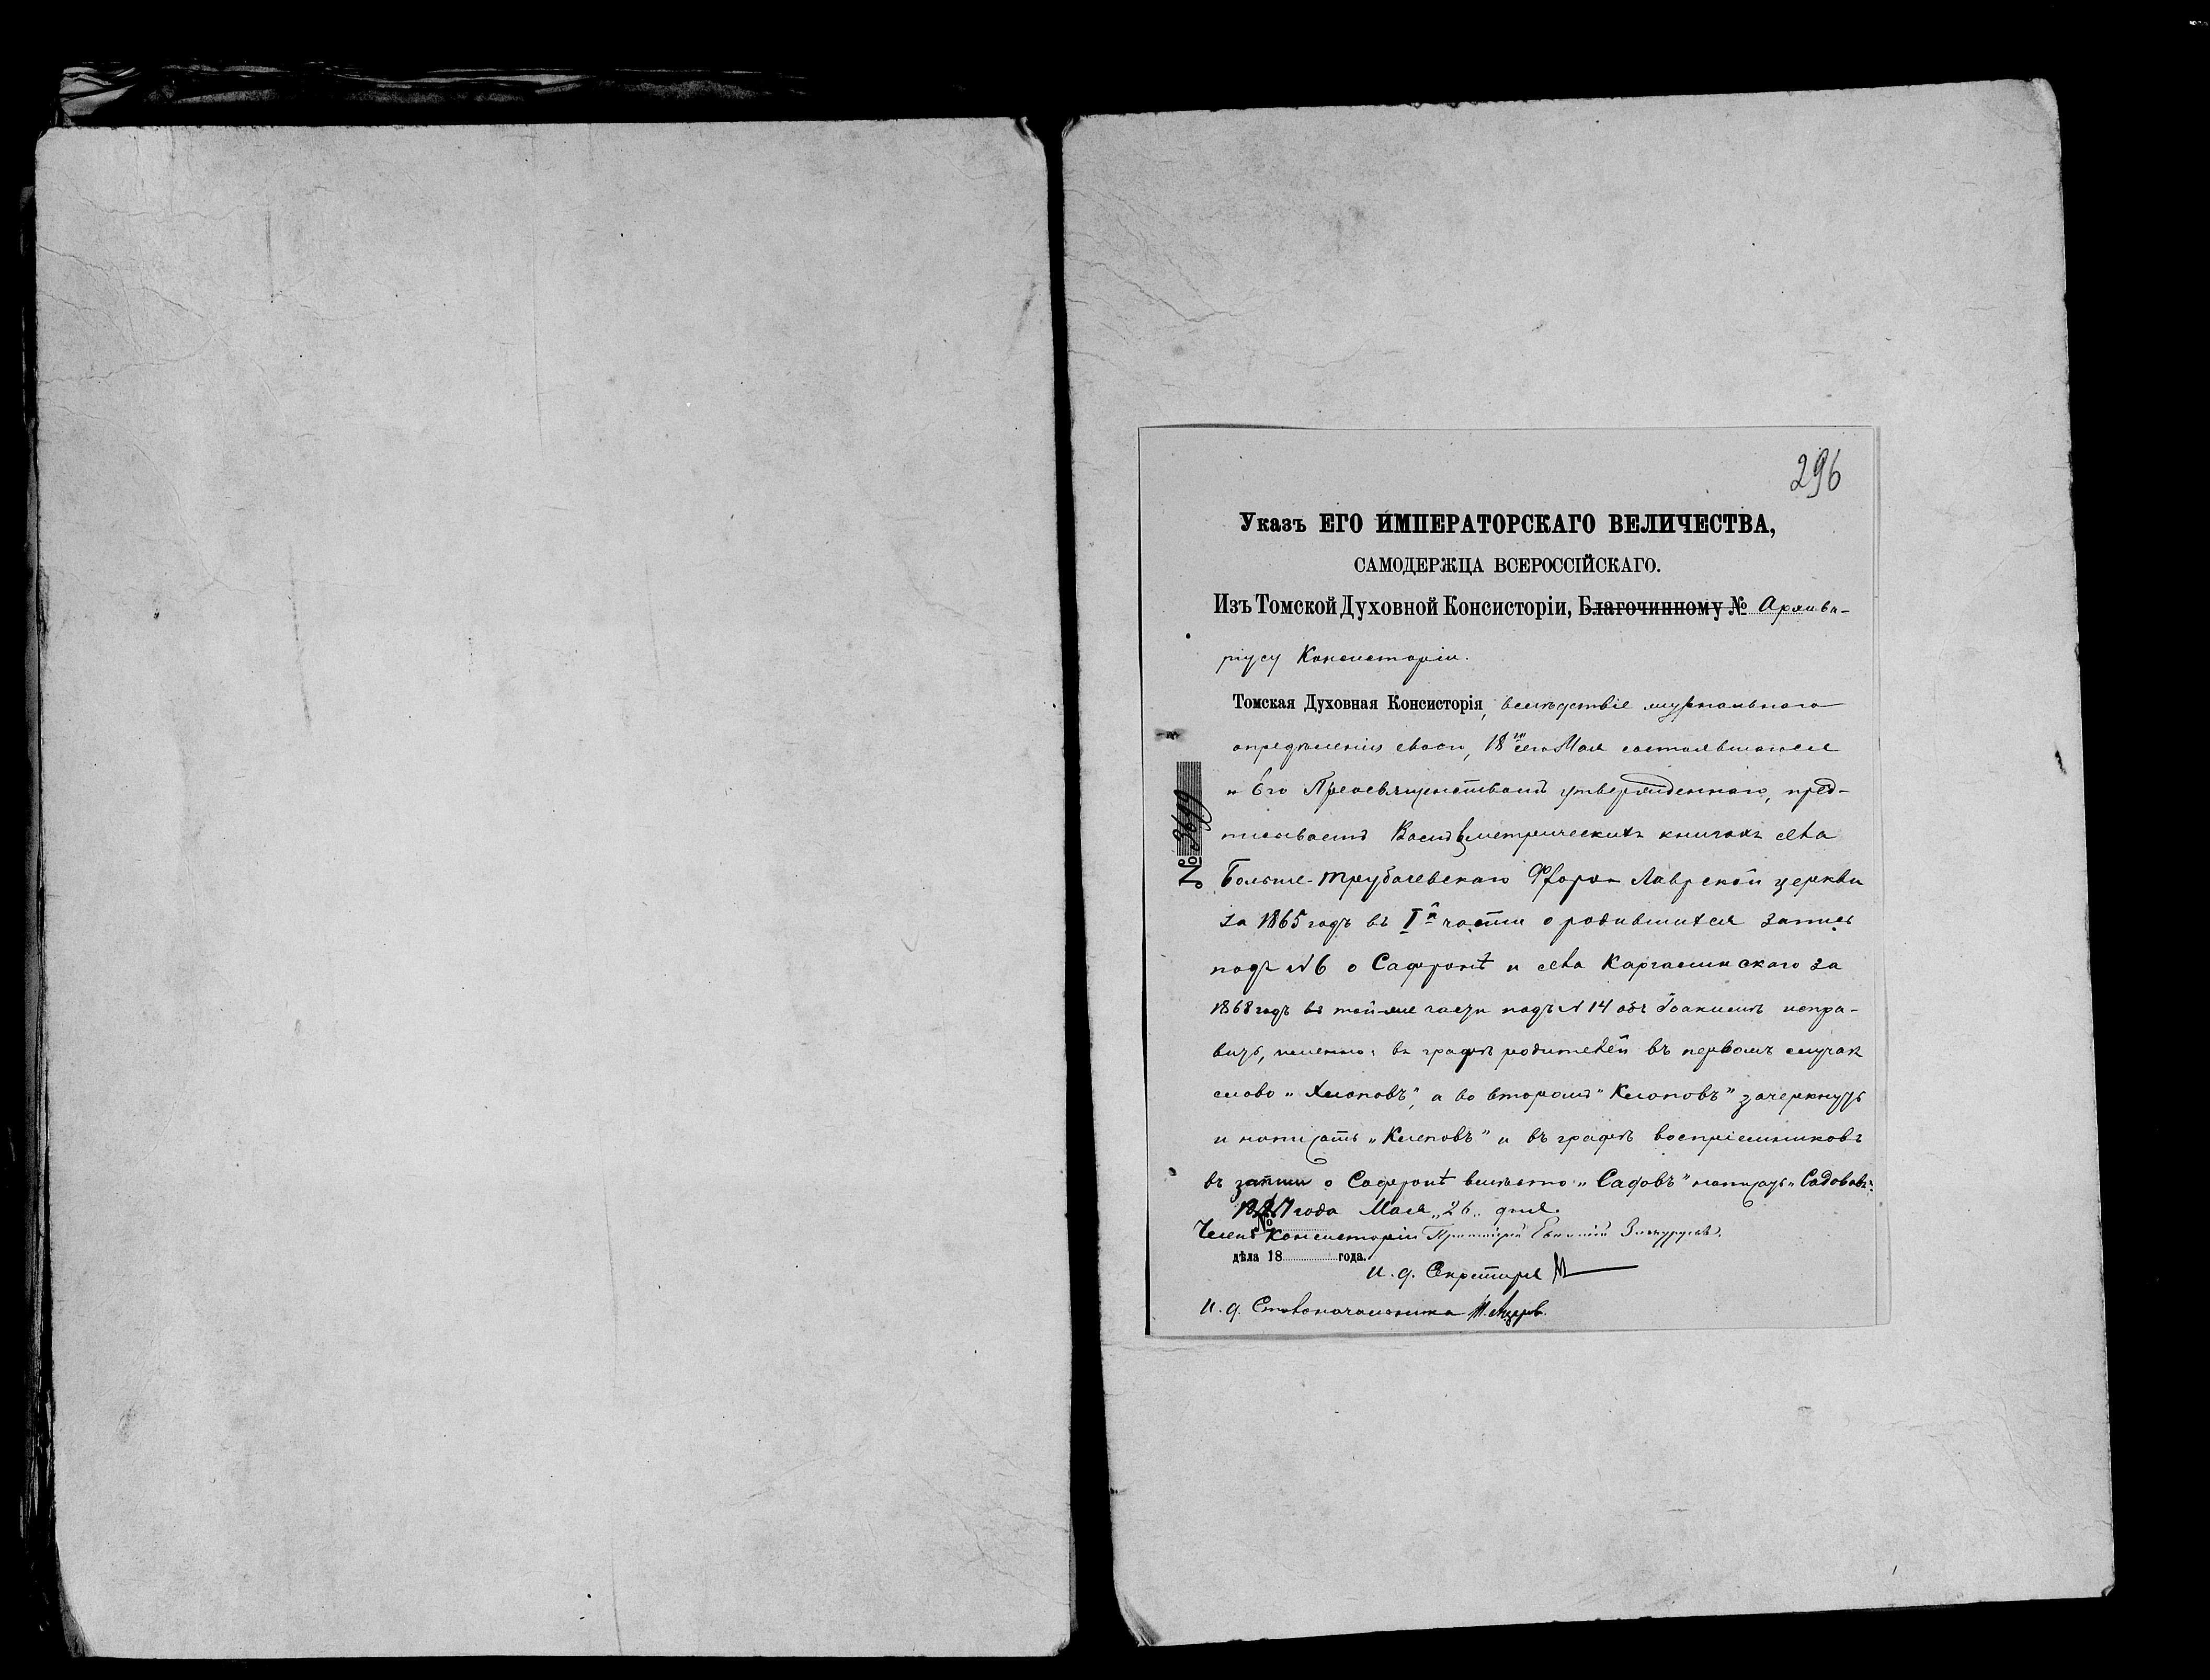 296
Указъ ЕГО ИМПЕРАТОРСКАГО ВЕЛИЧЕСТВА,
САМОДЕРЖЦА ВСЕРОССІЙСКАГО.
Изъ Томской Духовной Консисторіи, Благочинному № Архива-
ріусу Консисторіи.
Томская Духовная Консисторія, вслѣдствіе журнальнаго
опредѣленія своего, 18го сего Мая состоявшагося
и Его Преосвященствомъ утвержденнаго, пред-
писываетъ Вамъ въ метрическихъ книгахъ села
Больше-Трубачевскаго Флоро-Лаврской церкви
за 1865 годъ въ Iй части о родившихся запись
подъ № 6 о Сафронѣ и села Каргалинскаго за
1868 годъ въ той-же части подъ № 14 объ Іоакимѣ испра-
вить, именно: въ графѣ родителей въ первомъ случаѣ
слово „Хлоповъ", а во второмъ „Клоповъ" зачеркнуть
и написать „Клеповъ" и въ графѣ воспріемниковъ
въ записи о Сафронѣ вмѣсто „Сафовъ" написать „Садововъ".
года Мая „26„ дня.
№
Членъ Консисторіи Протоіерей
дѣла 18 года.
И. д. Секретаря
И. д. Столоначальника
№ 3699